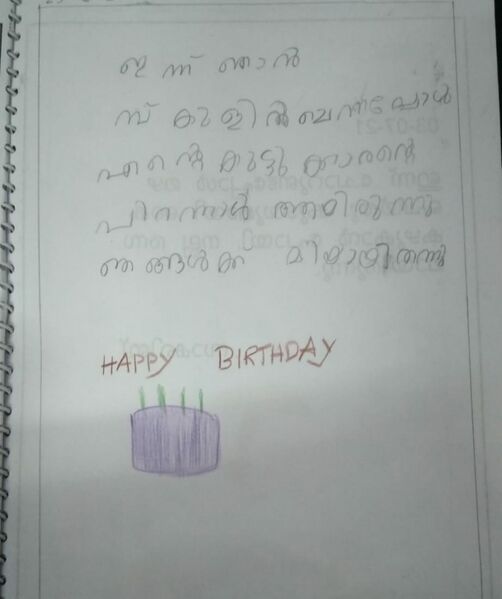 ഇന്ന് ഞാൻ
സ്കുളിൽ ചെന്നപ്പോൾ
എന്റെ കുട്ടുകാരന്റെ
പിറന്നാൾ ആയിരുന്നു
ഞങ്ങൾക്ക് മിഠായി തന്നു
HAPPY BIRTHDAY